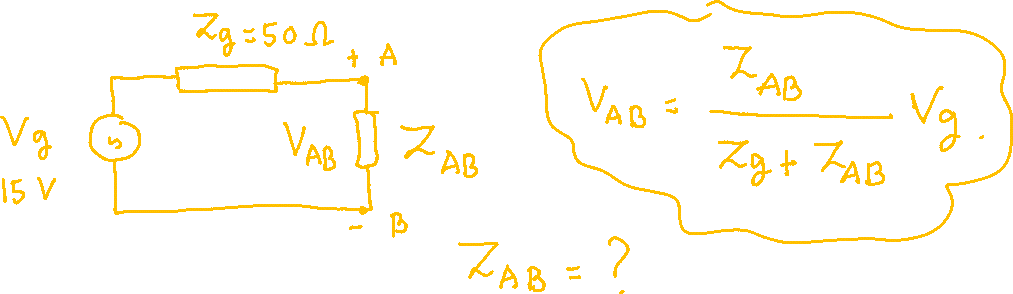 Zg = 50 Ω
+ A
Vg
15 V
VAB
ZAB
- B
VAB = ZAB / Zg + ZAB Vg.
ZAB = ?